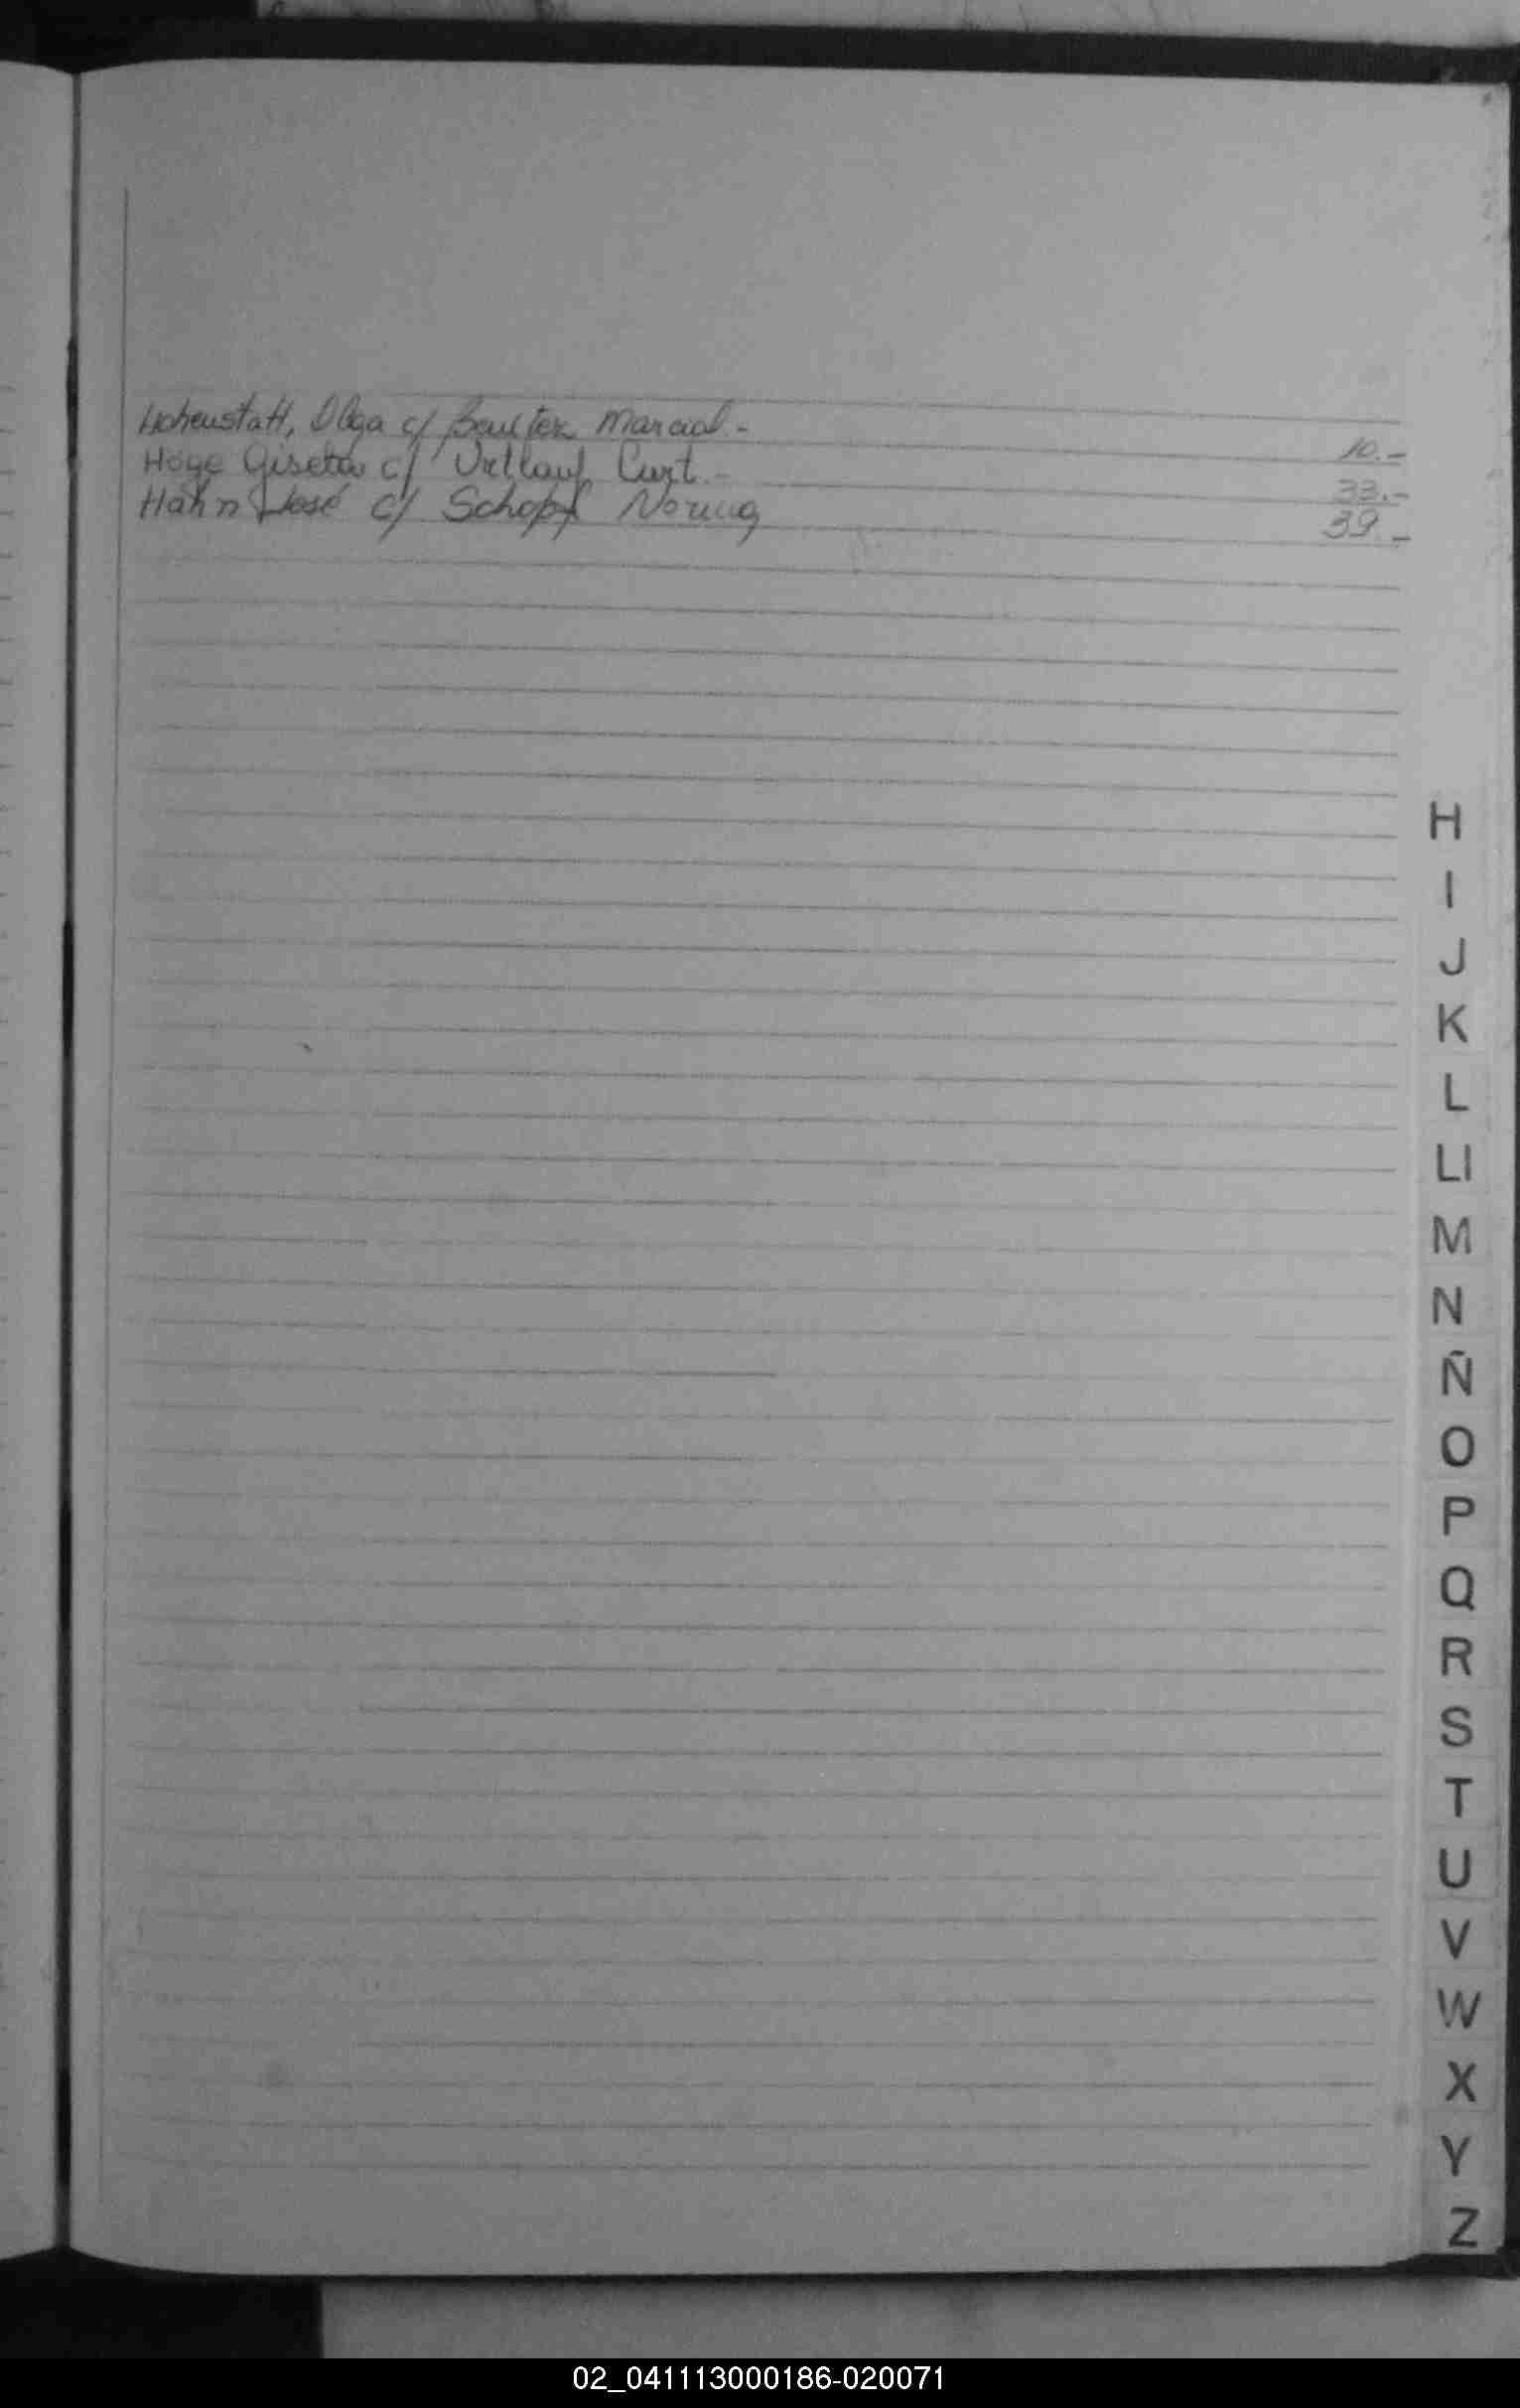 Hohenstatt, Olga c/ Marcial.- 10.-
Höge Gisela c/ Curt.- 33.-
Hahn José c/ Schopf 39.-
H
I
J
K
L
Ll
M
N
Ñ
O
P
Q
R
S
T
U
V
W
X
Y
Z
02_041113000186-020071